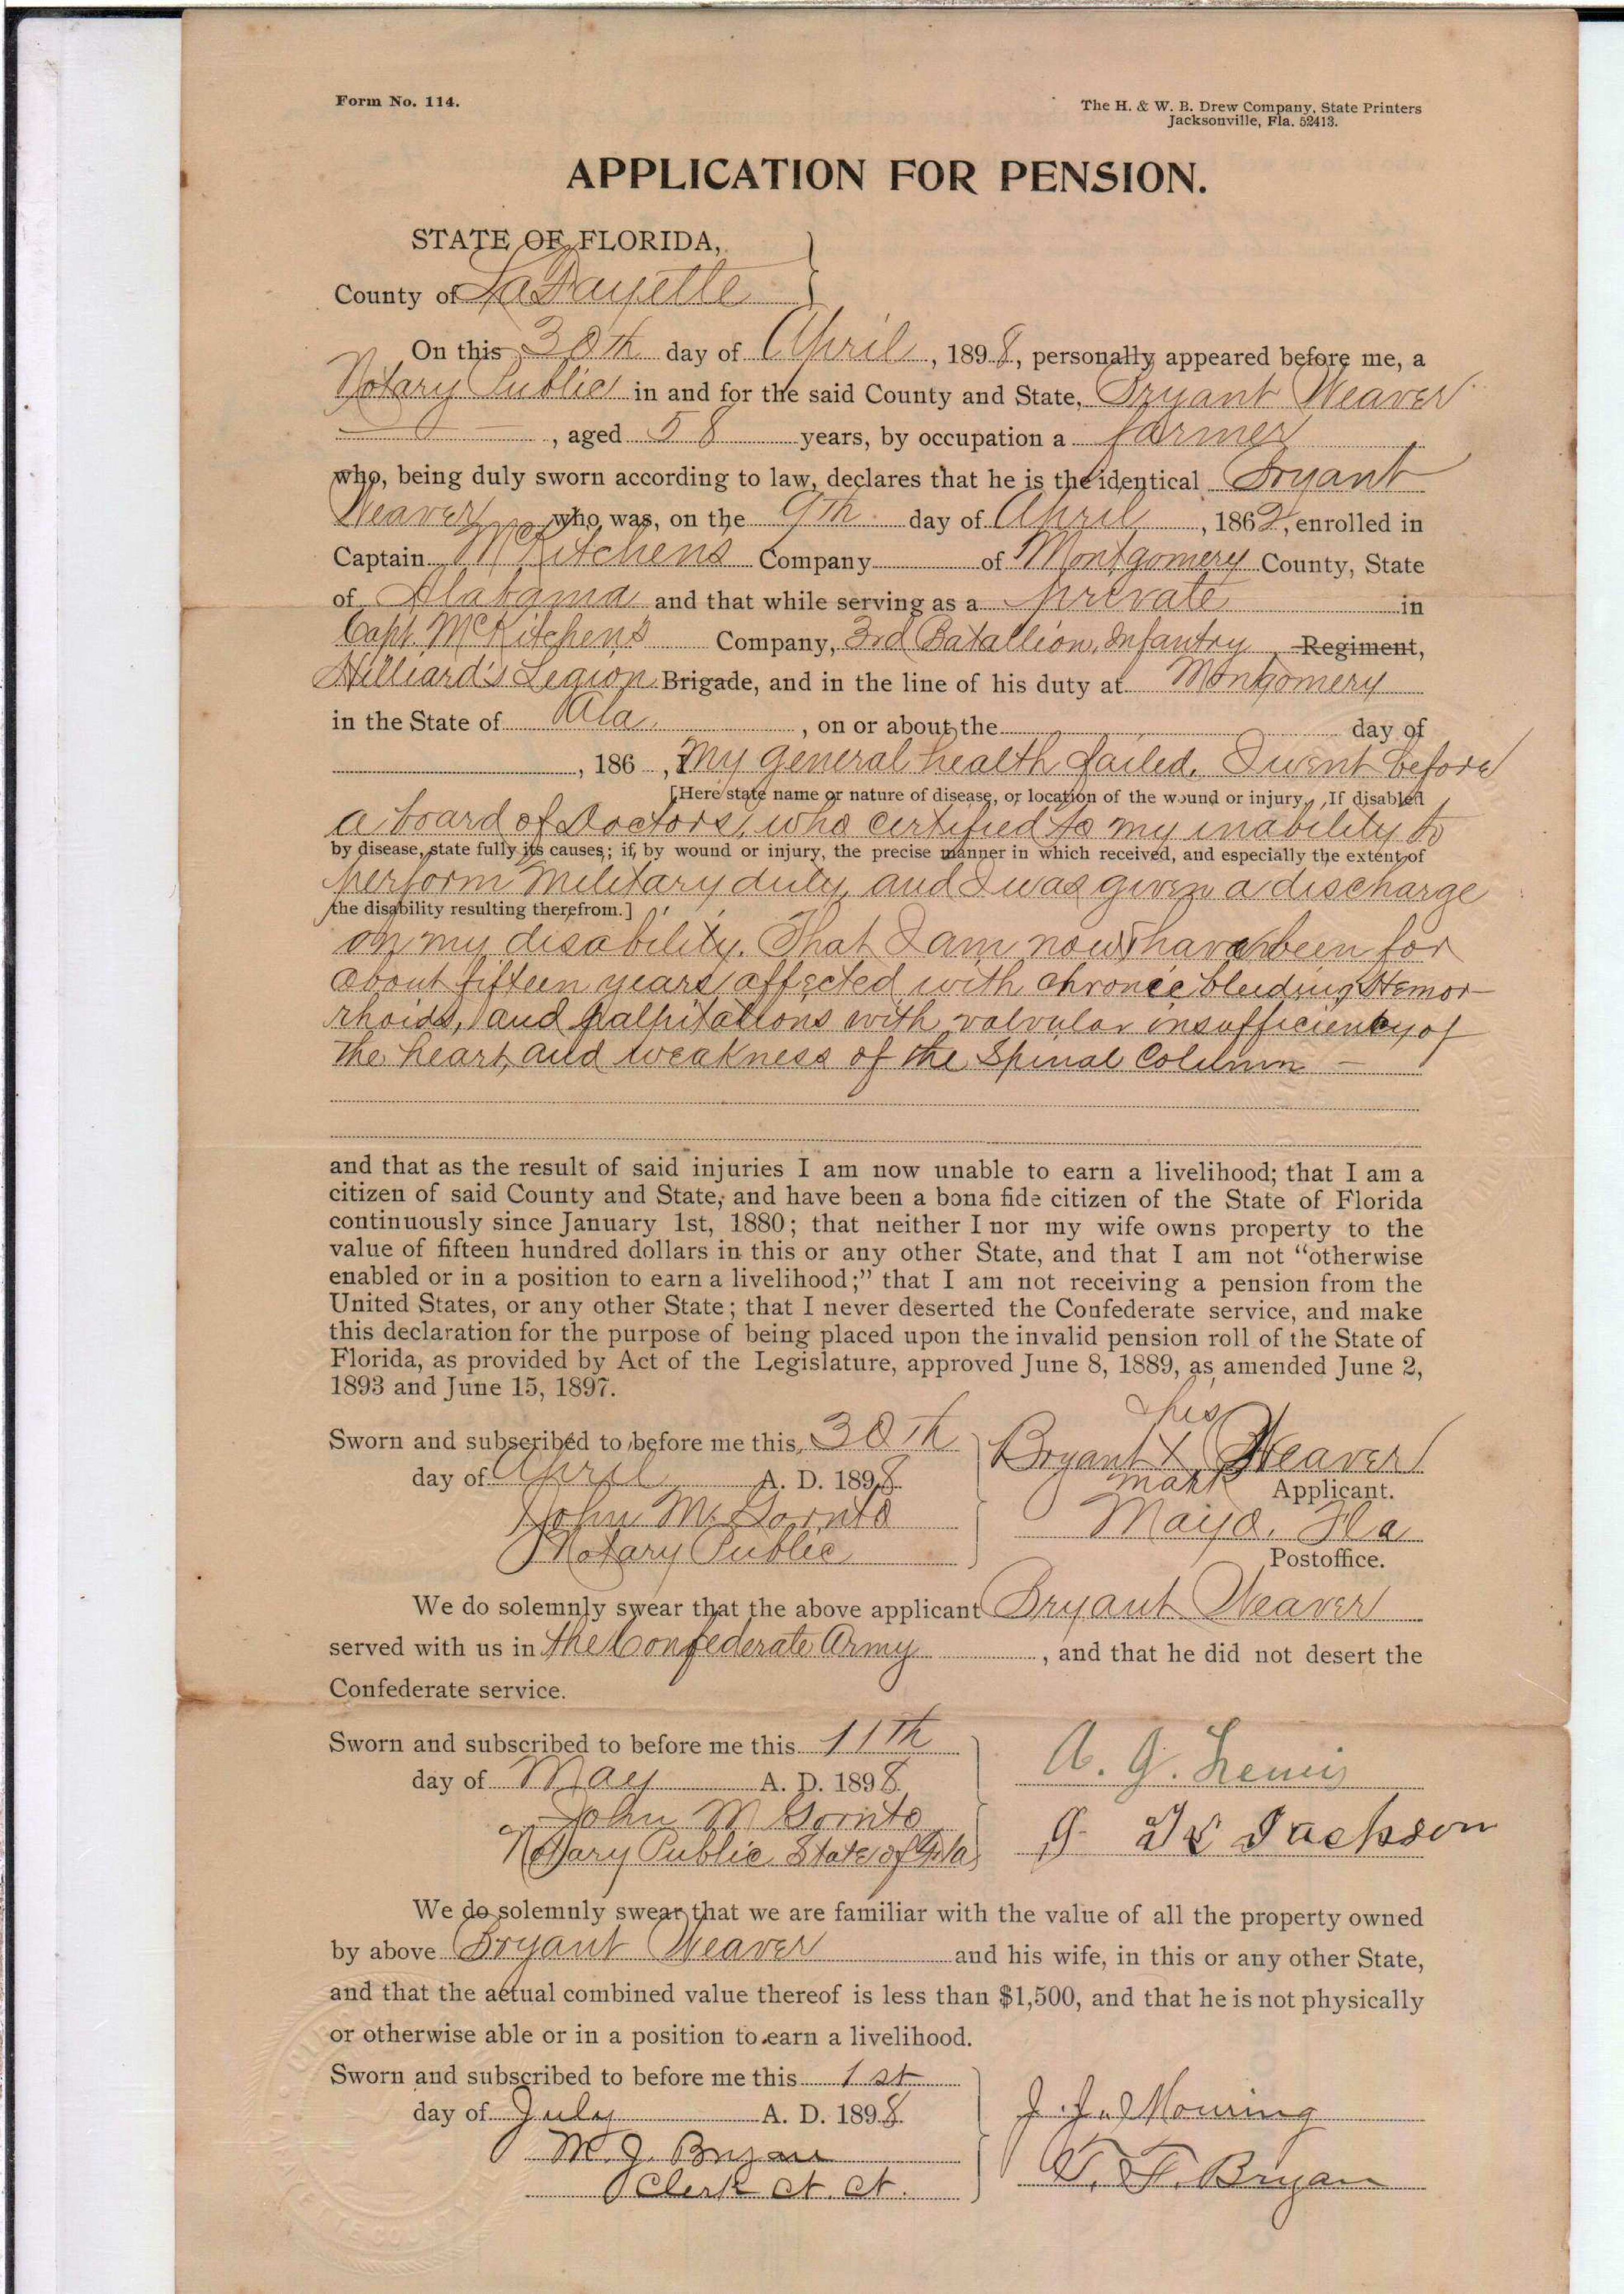 Form No. 114.
The H. & W. B. Drew Company, State Printers
Jacksonville, Fla. 52413.
APPLICATION FOR PENSION.
STATE OF FLORIDA,
County of LaFayette
On this 30th day of April, 1898, personally appeared before me, a
Notary Public in and for the said County and State, Bryant Weaver
, aged 58 years, by occupation a farmer
who, being duly sworn according to law, declares that he is the identical Bryant
Weaver who was, on the 9th day of April, 1862, enrolled in
Captain McKitchens Company of Montgomery County, State
of Alabama and that while serving as a private in
Capt. McKitchens Company, 3rd Batallion, Infantry Regiment,
Hilliard's Legion Brigade, and in the line of his duty at Montgomery
in the State of Ala. , on or about the day of
, 186 , My general health failed. I went before
[Here state name or nature of disease, or location of the wound or injury. If disabled
a board of Doctors, who certified to my inability to
by disease, state fully its causes; if, by wound or injury, the precise manner in which received, and especially the extent of
perform military duty, and I was given a discharge
the disability resulting therefrom.]
on my disability. That I am now & have been for
about fifteen years affected with chronic bleeding Hemor-
rhoids, and palpitations with valvular insufficiency of
the heart, and weakness of the Spinal Column —
and that as the result of said injuries I am now unable to earn a livelihood; that I am a
citizen of said County and State, and have been a bona fide citizen of the State of Florida
continuously since January 1st, 1880; that neither I nor my wife owns property to the
value of fifteen hundred dollars in this or any other State, and that I am not "otherwise
enabled or in a position to earn a livelihood;" that I am not receiving a pension from the
United States, or any other State; that I never deserted the Confederate service, and make
this declaration for the purpose of being placed upon the invalid pension roll of the State of
Florida, as provided by Act of the Legislature, approved June 8, 1889, as amended June 2,
1893 and June 15, 1897.
his
Sworn and subscribed to before me this 30th Bryant X Weaver
day of April A. D. 1898 mark Applicant.
John M. Gornto Mayo, Fla
Notary Public Postoffice.
We do solemnly swear that the above applicant Bryant Weaver
served with us in the Confederate Army , and that he did not desert the
Confederate service.
Sworn and subscribed to before me this 11th
day of May A. D. 1898 A. J. Lewis
John M Gornto
Notary Public State of Fla Jackson
We do solemnly swear that we are familiar with the value of all the property owned
by above Bryant Weaver and his wife, in this or any other State,
and that the actual combined value thereof is less than $1,500, and that he is not physically
or otherwise able or in a position to earn a livelihood.
Sworn and subscribed to before me this 1st
day of July A. D. 1898 J. J. Mouring
M. J. Bryan
Clerk Ct. Ct. T. F. Bryan